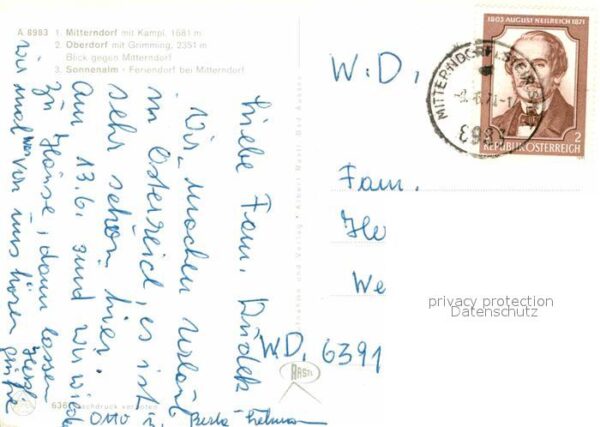 A 8983 1. Mitterndorf mit Kampl, 1681 m
2. Oberdorf mit Grimming, 2351 m
Blick gegen Mitterndorf
3. Sonnenalm - Feriendorf bei Mitterndorf
1803 AUGUST NEILREICH 1871
2
REPUBLIK ÖSTERREICH
8983
W.D.,
Fam.
We
privacy protection
Datenschutz
Liebe Fam.
Wir machen Urlaub
in Österreich, es ist
sehr schön hier.
Am 13.6. sind wir wieder
zu Hause, dann lassen
wir mal was von uns hören
Herzl.
Grüße
OMO
WD. 6391